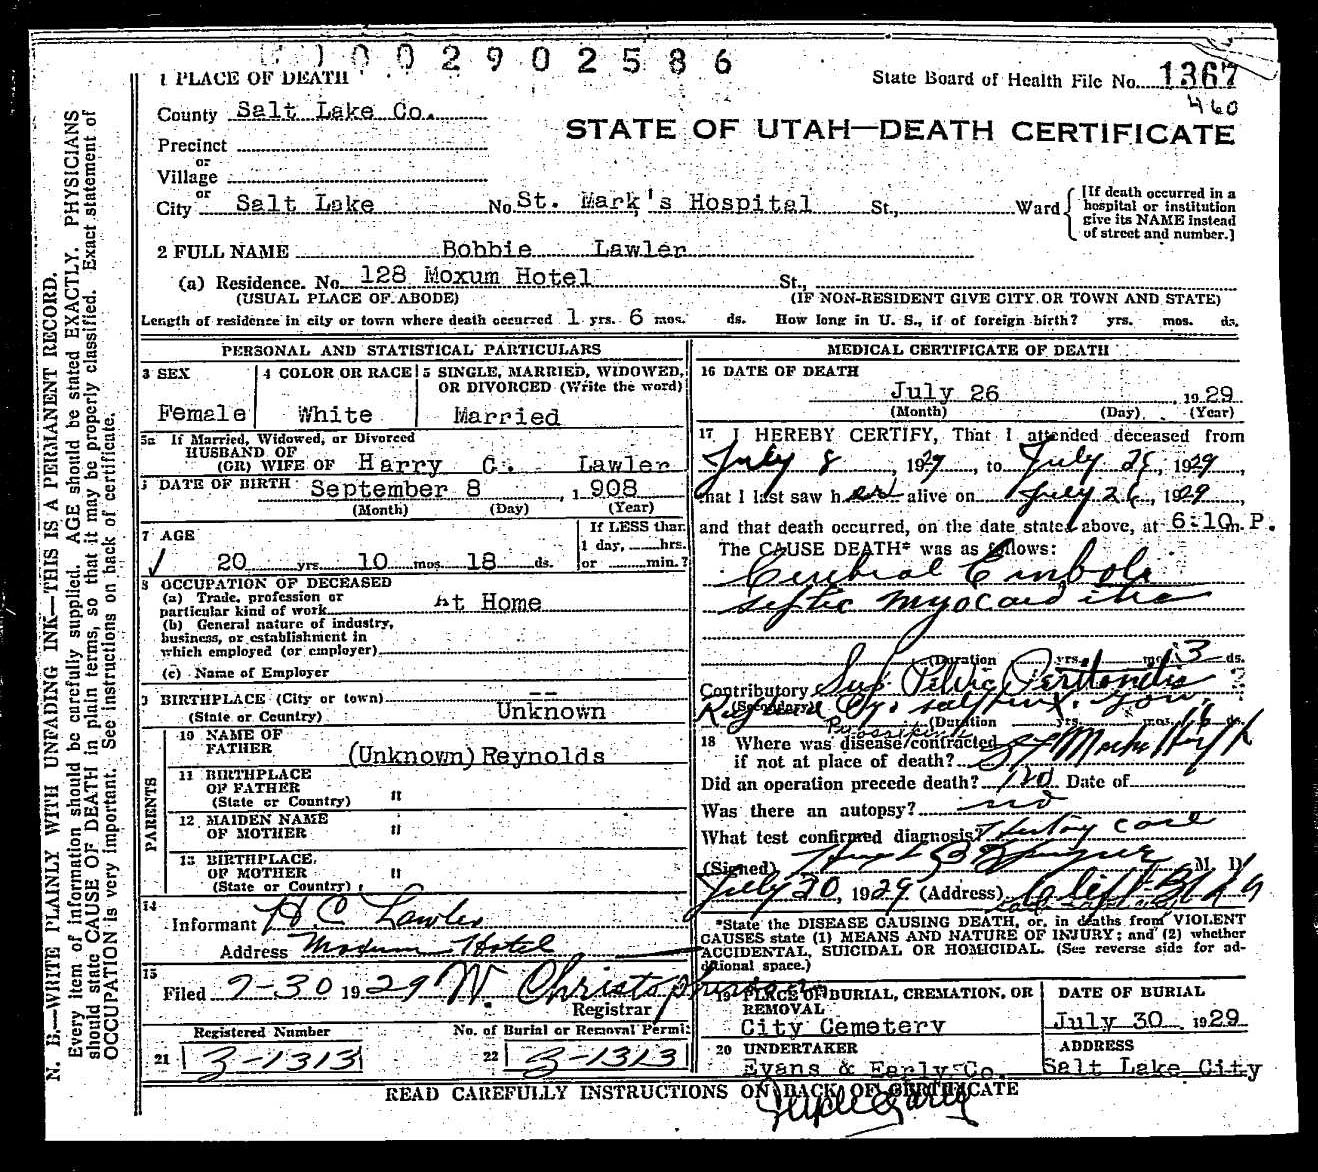 0 0 2 9 0 2 5 8 6
1 PLACE OF DEATH
State Board of Health File No. 1367
460
County Salt Lake Co.
STATE OF UTAH—DEATH CERTIFICATE
Precinct
or
Village
or
City Salt Lake No. St. Mark's Hospital St., Ward
[If death occurred in a
hospital or institution
give its NAME instead
of street and number.]
2 FULL NAME Bobbie Lawler
(a) Residence. No. 128 Moxum Hotel St.,
(USUAL PLACE OF ABODE) (IF NON-RESIDENT GIVE CITY OR TOWN AND STATE)
Length of residence in city or town where death occurred 1 yrs. 6 mos. ds. How long in U. S., if of foreign birth? yrs. mos. ds.
PERSONAL AND STATISTICAL PARTICULARS
3 SEX
Female
4 COLOR OR RACE
White
5 SINGLE, MARRIED, WIDOWED,
OR DIVORCED (Write the word)
Married
5a If Married, Widowed, or Divorced
HUSBAND OF
(OR) WIFE OF Harry C. Lawler
DATE OF BIRTH September 8, 1908
(Month) (Day) (Year)
7 AGE
20 yrs. 10 mos. 18 ds.
If LESS than
1 day, hrs.
or min.?
8 OCCUPATION OF DECEASED
(a) Trade, profession or
particular kind of work At Home
(b) General nature of industry,
business, or establishment in
which employed (or employer)
(c) Name of Employer
9 BIRTHPLACE (City or town) --
(State or Country) Unknown
PARENTS
10 NAME OF
FATHER (Unknown) Reynolds
11 BIRTHPLACE
OF FATHER
(State or Country) "
12 MAIDEN NAME
OF MOTHER "
13 BIRTHPLACE
OF MOTHER
(State or Country) "
14
Informant H C Lawler
Address Moxum Hotel
15
Filed 7-30 1929 W. Christopherson
Registrar
Registered Number
21 3-1313
No. of Burial or Removal Permit
22 3-1313
MEDICAL CERTIFICATE OF DEATH
16 DATE OF DEATH
July 26, 1929
(Month) (Day) (Year)
17 I HEREBY CERTIFY, That I attended deceased from
July 8, 1929, to July 26, 1929,
that I last saw her alive on July 26, 1929,
and that death occurred, on the date stated above, at 6:10 m. P.
The CAUSE DEATH* was as follows:
Cerebral Emboli
septic myocarditis
(Duration yrs. mos. 3 ds.
Contributory Sup Pelvic Peritonitis
(Secondary)
(Duration yrs. mos. ds.
18 Where was disease contracted
if not at place of death? St Marks Hosp
Did an operation precede death? no Date of
Was there an autopsy? no
What test confirmed diagnosis?
(Signed) M. D.
July 30, 1929 (Address)
*State the DISEASE CAUSING DEATH, or, in deaths from VIOLENT
CAUSES state (1) MEANS AND NATURE OF INJURY; and (2) whether
ACCIDENTAL, SUICIDAL OR HOMICIDAL. (See reverse side for ad-
ditional space.)
19 PLACE OF BURIAL, CREMATION, OR
REMOVAL
City Cemetery
DATE OF BURIAL
July 30, 1929
20 UNDERTAKER
Evans & Early Co.
ADDRESS
Salt Lake City
READ CAREFULLY INSTRUCTIONS ON BACK OF CERTIFICATE
N. B.—WRITE PLAINLY WITH UNFADING INK—THIS IS A PERMANENT RECORD.
Every item of information should be carefully supplied. AGE should be stated EXACTLY. PHYSICIANS
should state CAUSE OF DEATH in plain terms, so that it may be properly classified. Exact statement of
OCCUPATION is very important. See instructions on back of certificate.